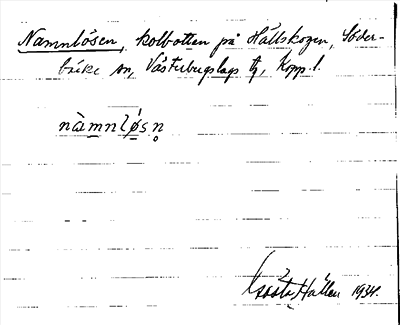 Namnlösen, kolbotten på Hällskogen, Söder-
bärke sn, Västerbergslags tg, Kopp. l.
nàmnløsn̥
Gösta Hallen 1934.